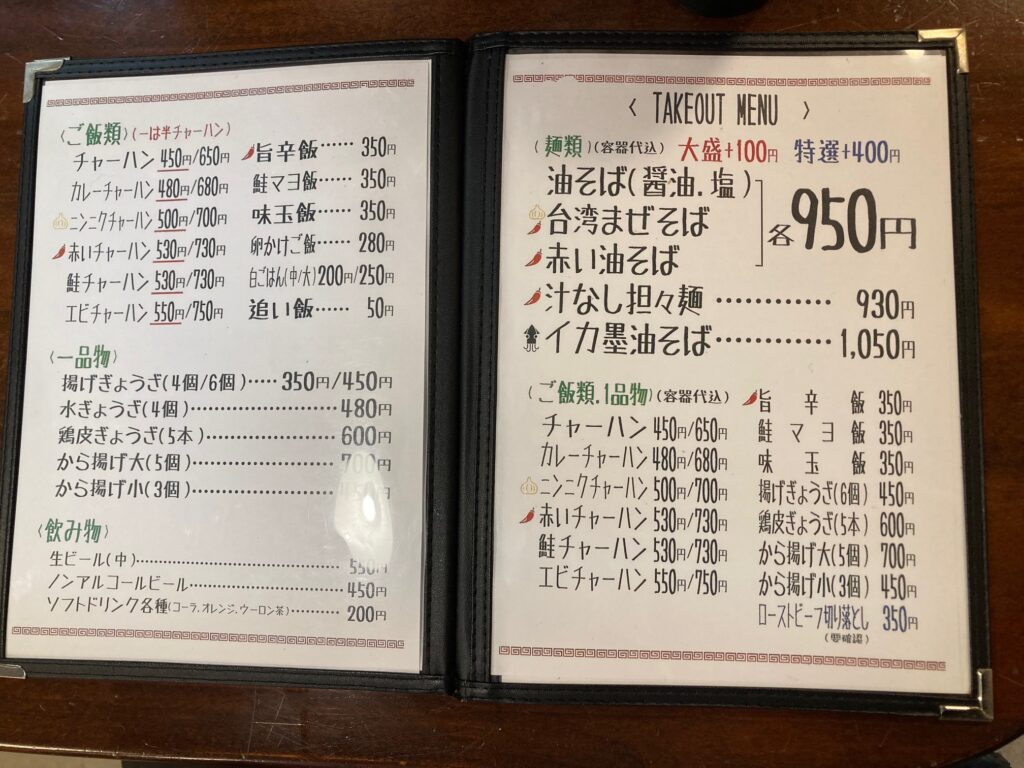 〈ご飯類〉(ーは半チャーハン)
チャーハン 450円/650円
カレーチャーハン 480円/680円
ニンニクチャーハン 500円/700円
赤いチャーハン 530円/730円
鮭チャーハン 530円/730円
エビチャーハン 550円/750円
旨辛飯…… 350円
鮭マヨ飯…… 350円
味玉飯…… 350円
卵かけご飯…… 280円
白ごはん(中/大)200円/250円
追い飯…… 50円
〈一品物〉
揚げぎょうざ(4個/6個)‥‥‥350円/450円
水ぎょうざ(4個)………………480円
鶏皮ぎょうざ(5本)………………600円
から揚げ大(5個)………………700円
から揚げ小(3個)………………450円
〈飲み物〉
生ビール(中)………………550円
ノンアルコールビール………………450円
ソフトドリンク各種(コーラ.オレンジ.ウーロン茶)………200円
〈 TAKEOUT MENU 〉
(麺類)(容器代込) 大盛+100円 特選+400円
油そば(醤油.塩)
台湾まぜそば
赤い油そば
各950円
汁なし担々麺………… 930円
イカ墨油そば…………1,050円
(ご飯類.1品物)(容器代込)
チャーハン 450円/650円
カレーチャーハン 480円/680円
ニンニクチャーハン 500円/700円
赤いチャーハン 530円/730円
鮭チャーハン 530円/730円
エビチャーハン 550円/750円
旨辛飯 350円
鮭マヨ飯 350円
味玉飯 350円
揚げぎょうざ(6個) 450円
鶏皮ぎょうざ(5本) 600円
から揚げ大(5個) 700円
から揚げ小(3個) 450円
ローストビーフ切り落とし 350円
(要確認)